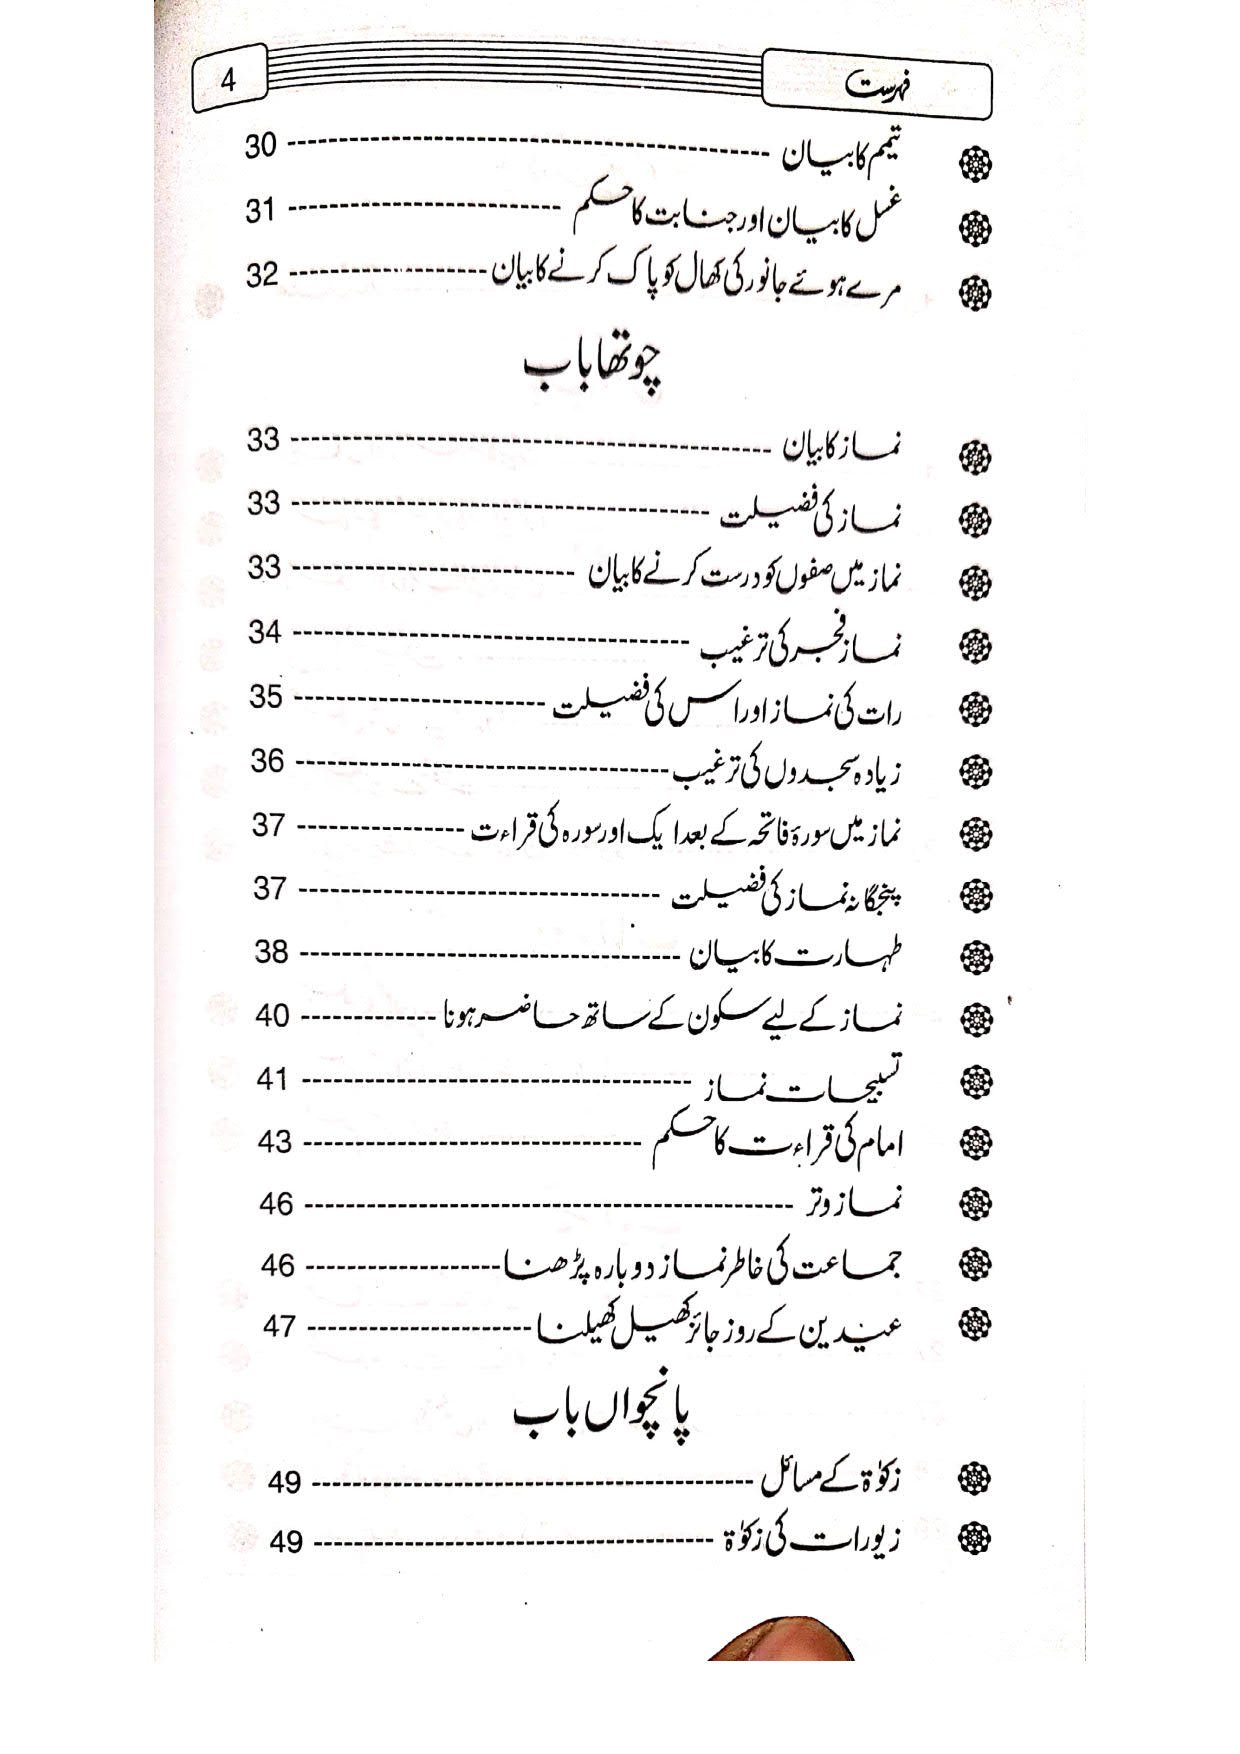 فہرست 4
تیمم کا بیان ---------------------------------------- 30
غسل کا بیان اور جنابت کا حکم ---------------------- 31
مرے ہوئے جانور کی کھال کو پاک کرنے کا بیان ---------------- 32
چوتھا باب
نماز کا بیان ---------------------------------------- 33
نماز کی فضیلت ----------------------------------- 33
نماز میں صفوں کو درست کرنے کا بیان ----------------------- 33
نماز فجر کی ترغیب -------------------------------- 34
رات کی نماز اور اس کی فضیلت -------------------- 35
زیادہ سجدوں کی ترغیب ------------------------------ 36
نماز میں سورۂ فاتحہ کے بعد ایک اور سورہ کی قراءت -------------- 37
پنجگانہ نماز کی فضیلت ----------------------------- 37
طہارت کا بیان ------------------------------- 38
نماز کے لیے سکون کے ساتھ حاضر ہونا ----------- 40
تسبیحات نماز -------------------------------- 41
امام کی قراءت کا حکم ---------------------------- 43
نماز وتر ---------------------------------------- 46
جماعت کی خاطر نماز دوبارہ پڑھنا ---------------- 46
عیدین کے روز جائز کھیل کھیلنا ------------------ 47
پانچواں باب
زکوٰۃ کے مسائل ------------------------------------ 49
زیورات کی زکوٰۃ --------------------------------- 49